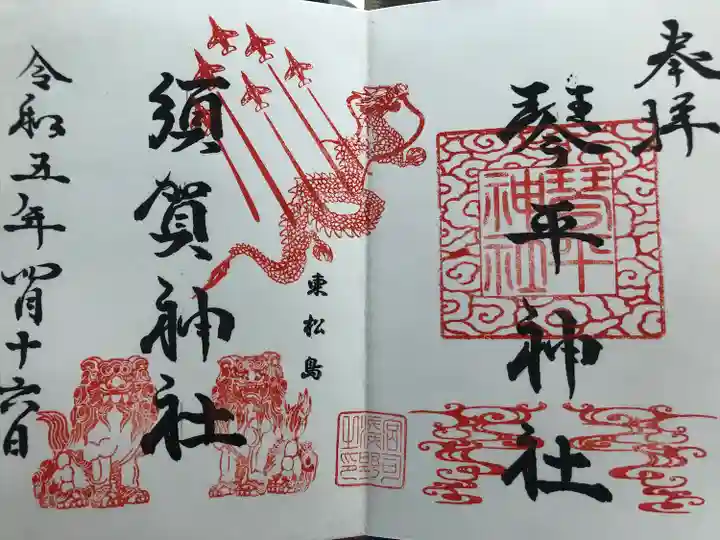 奉拝
琴平神社
琴平神社
東松島
須賀神社
令和五年四月十六日